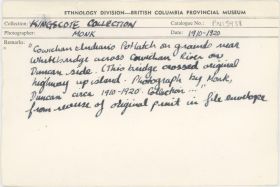 ETHNOLOGY DIVISION—BRITISH COLUMBIA PROVINCIAL MUSEUM
Collection: KINGSCOTE COLLECTION Catalogue No.: PN15938
Photographer: MONK Date: 1910-1920
Remarks:
"Cowichan Indians Potlatch on grounds near
bridge across Cowichan River on
Duncan side. (This bridge crossed original
highway up island. Photograph by Monk,
Duncan circa 1910-1920. Collection..."
from reverse of original print in file envelope